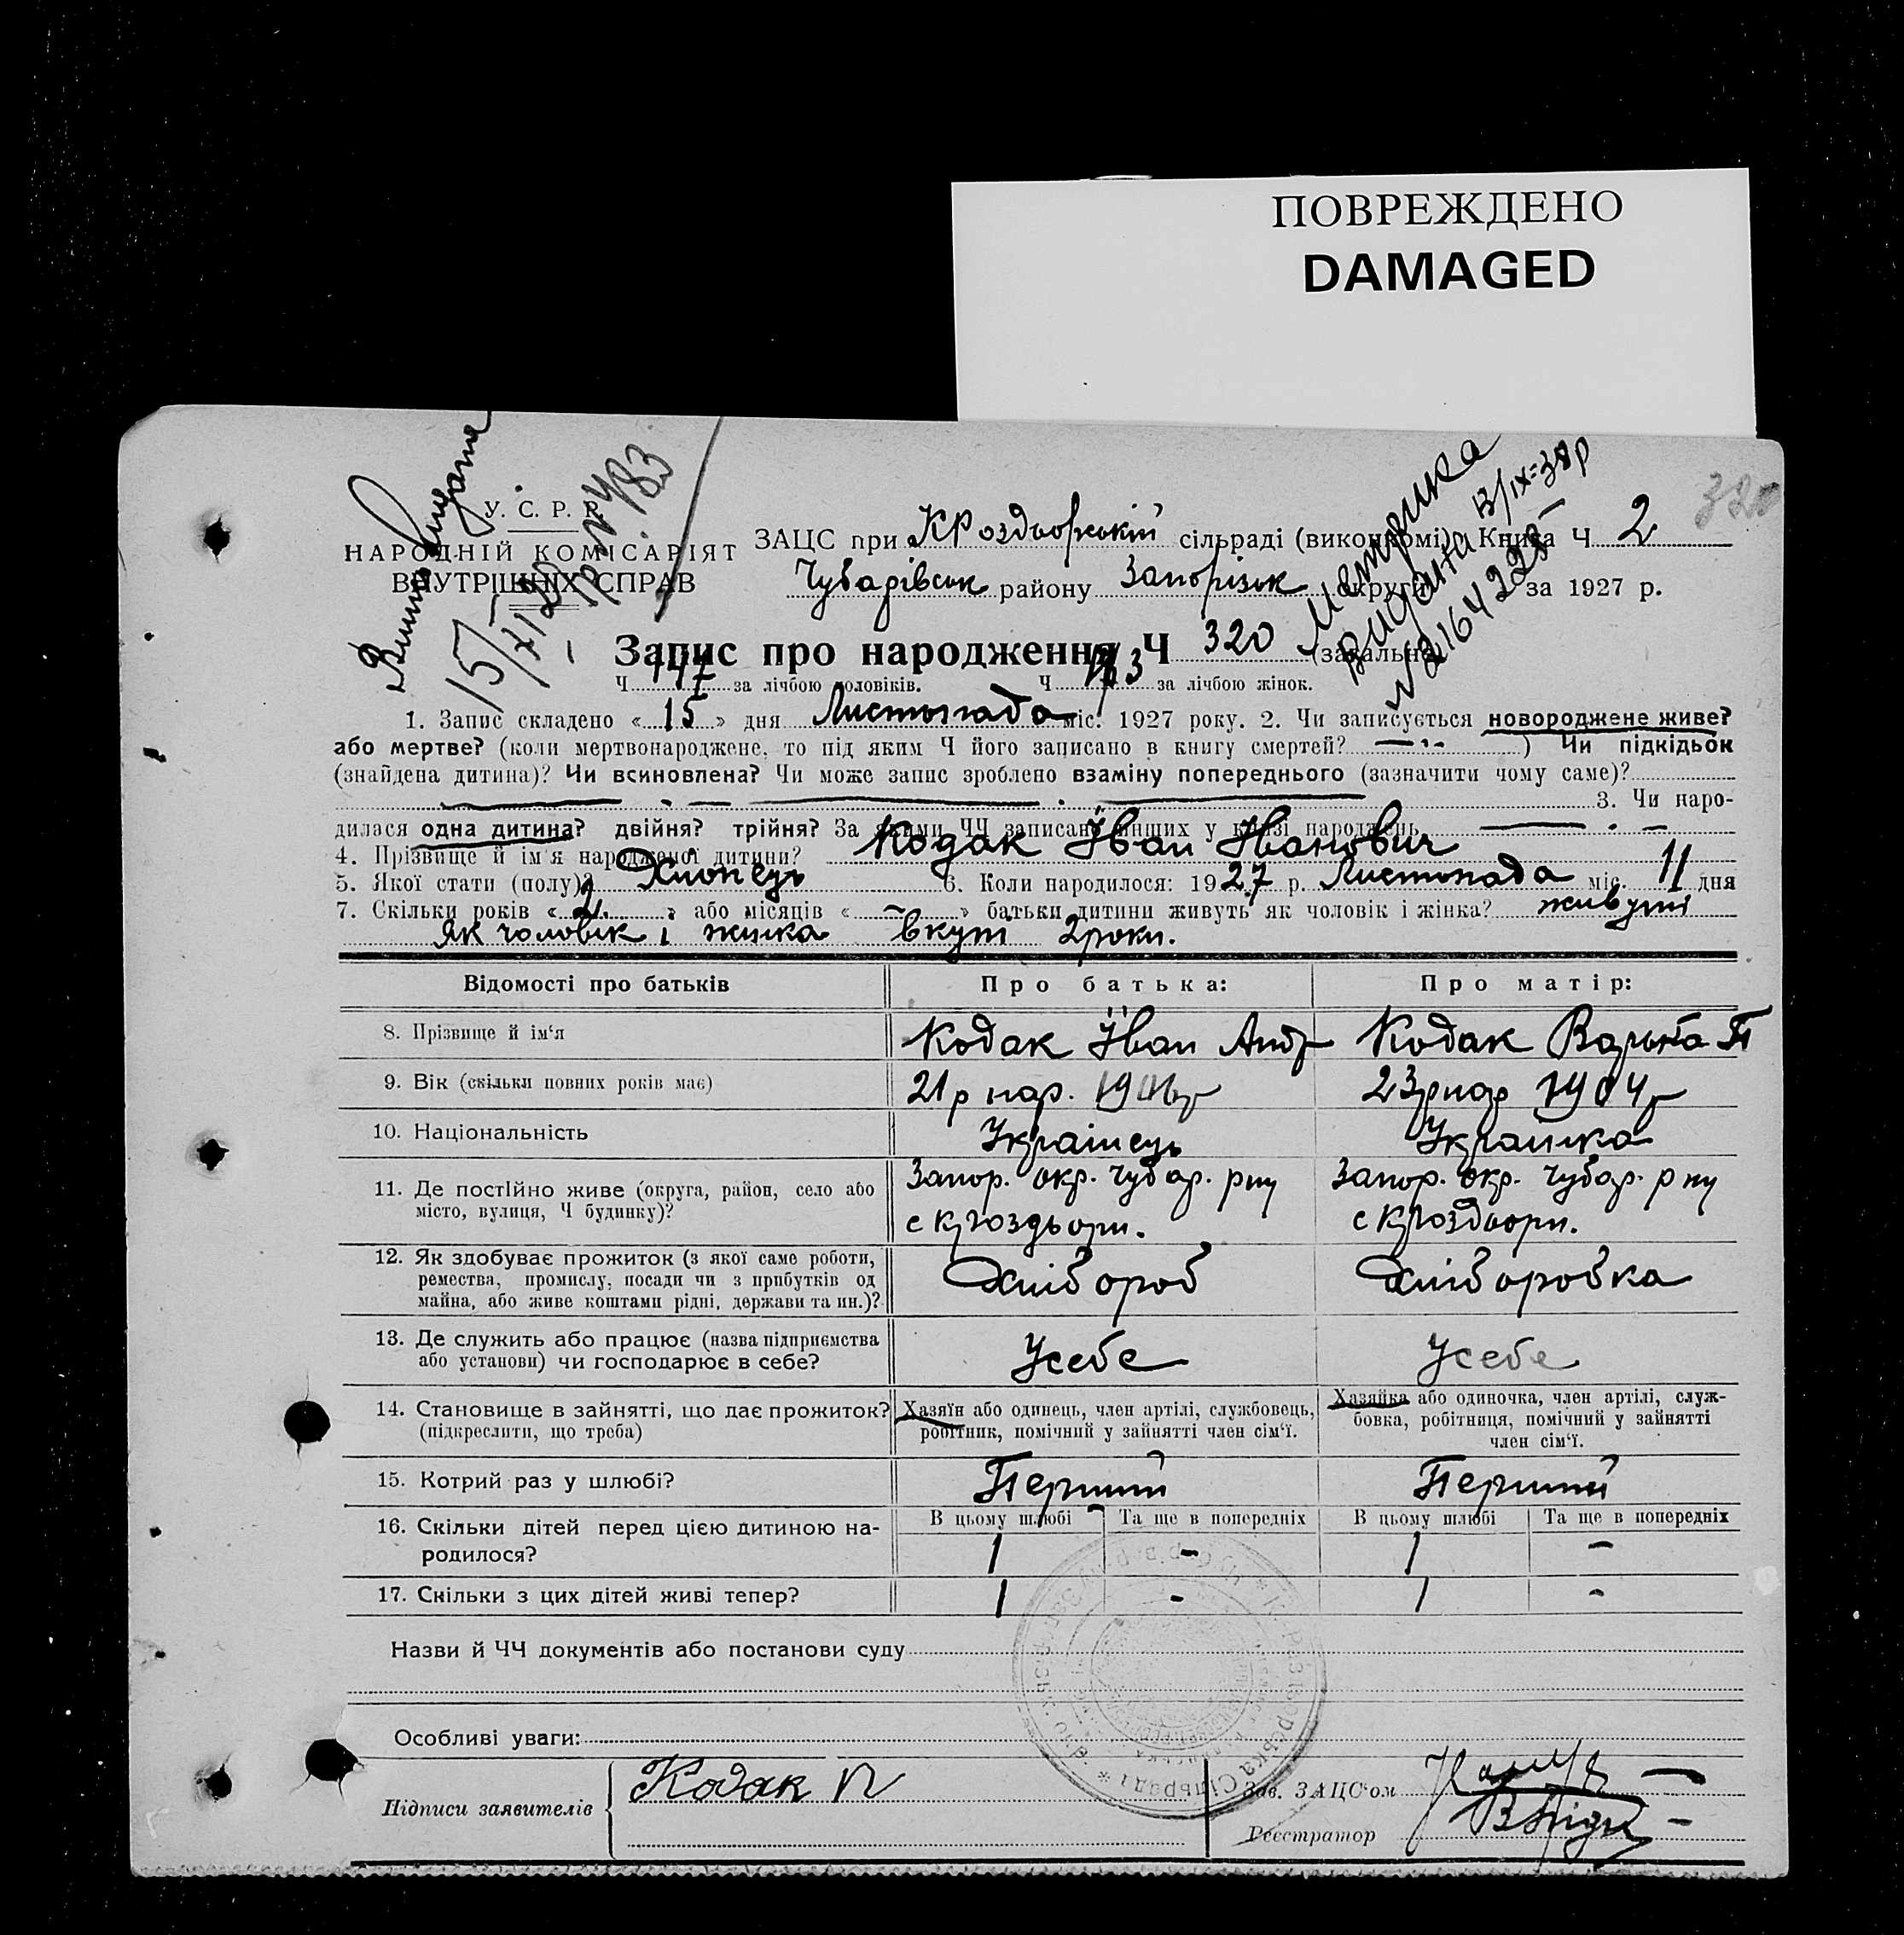 ПОВРЕЖДЕНО
DAMAGED
320
Метрика
видана 13/IX=38р
У. С. Р. Р.
НАРОДНІЙ КОМІСАРІЯТ
ВНУТРІШНІХ СПРАВ
ЗАЦС при КРоздьорській сільраді (виконкомі). Книга Ч 2
Чубарівськ району Запорізьк округи за 1927 р.
Запис про народження Ч 320 (загальна)
Ч 147 за лічбою чоловіків. Ч за лічбою жінок.
1. Запис складено « 15 » дня Листопада міс. 1927 року. 2. Чи записується новороджене живе?
або мертве? (коли мертвонароджене, то під яким Ч його записано в книгу смертей? — ) Чи підкідьок
(знайдена дитина)? Чи всиновлена? Чи може запис зроблено взаміну попереднього (зазначити чому саме)?
3. Чи наро-
дилася одна дитина? двійня? трійня? За якими ЧЧ записано инших у книзі народжень —
4. Прізвище й ім'я народженої дитини? Кодак Іван Иванович
5. Якої стати (полу)? Хлопець 6. Коли народилося: 1927 р. Листопада міс. 11 дня
7. Скільки років « 2 » або місяців « – » батьки дитини живуть як чоловік і жінка? живуть
як чоловік і жинка вкуті 2 роки.
Відомості про батьків Про батька: Про матір:
8. Прізвище й ім'я Кодак Іван Андр Кодак Варька П
9. Вік (скільки повних років має) 21 р нар. 1906р 23 р нар 1904р
10. Національність Українець Украинка
11. Де постійно живе (округа, район, село або Запор. окр. Чубар. рну Запор. окр. Чубар. рну
місто, вулиця, Ч будинку)? с кроздьори. с кроздьори.
12. Як здобуває прожиток (з якої саме роботи,
ремества, промислу, посади чи з прибутків од Хлібороб Хліборобка
майна, або живе коштами рідні, держави та ин.)?
13. Де служить або працює (назва підприємства
або установи) чи господарює в себе? Усебе Усебе
14. Становище в зайнятті, що дає прожиток? Хазяїн або одинець, член артілі, службовець, Хазяйка або одиночка, член артілі, служ-
(підкреслити, що треба) робітник, помічний у зайнятті член сім'ї. бовка, робітниця, помічний у зайнятті
член сім'ї.
15. Котрий раз у шлюбі? Перший Перший
В цьому шлюбі Та ще в попередніх В цьому шлюбі Та ще в попередніх
16. Скільки дітей перед цією дитиною на-
родилося? 1 - 1 -
17. Скільки з цих дітей живі тепер? 1 - 1 -
Назви й ЧЧ документів або постанови суду
Особливі уваги:
Підписи заявителів Кодак Зав. ЗАЦС'ом
Реєстратор